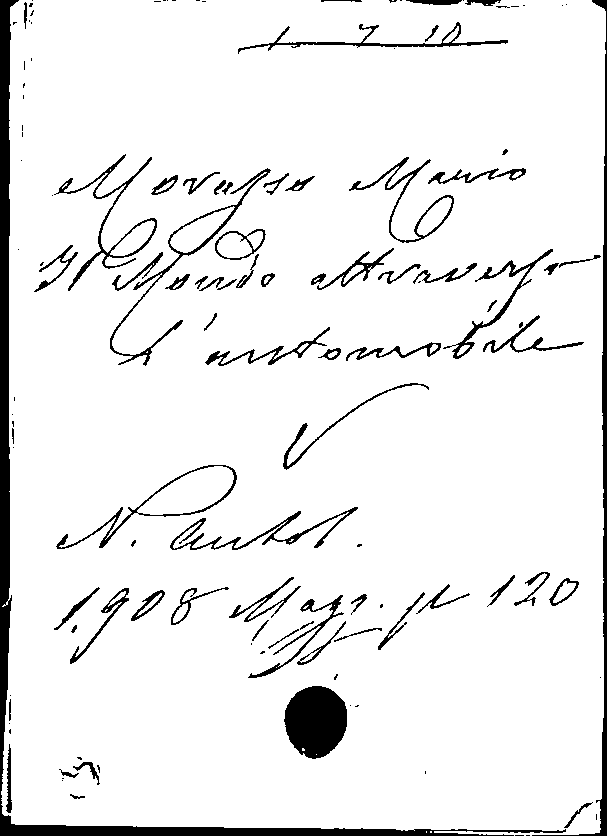 1 7 10
Morasso Mario
Il Mondo attraverso
l'automobile
V
N. Antol.
1.908 Magg. pt 120